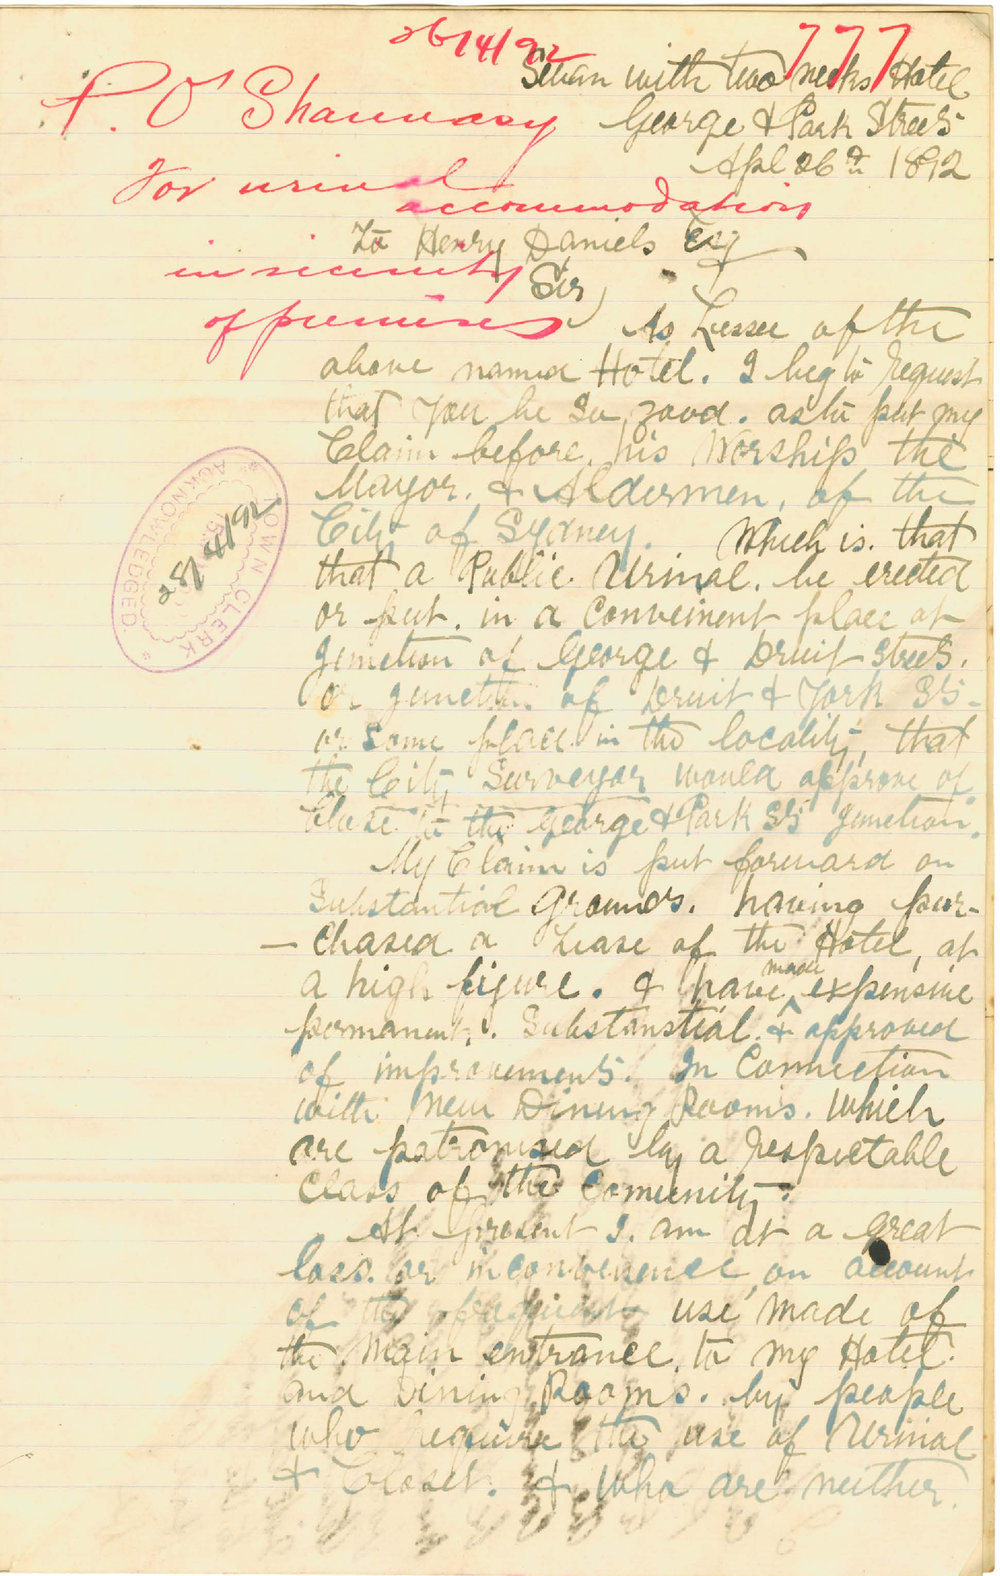 26/4/92
777
Swan with two necks Hotel
P. O'Shannassy
George & Park Streets
Apl 26th 1892
For urinal
accommodation
To Henry Daniels Esq
in vicinity
Sir,
of premises
As Lessee of the
above named Hotel. I beg to request
that you be so good. as to put my
Claim before, his Worship the
Mayor. & Aldermen, of the
City of Sydney. Which is. that
that a Public. Urinal. be erected
or put. in a conveinent place at
junction of George & Druit Streets.
or junction of Druit & York Sts.
or some place in the locality, that
the City Surveyor would approve of.
Close to the George & Park Sts junction.
My Claim is put forward on
Substantial grounds. having pur-
-chased a Lease of the Hotel, at
a high figure. & have made expensive
permanent. Substanstial. & approved
of improvements. In Connection
with New Dining Rooms. which
are patronised by a respectable
class of the Comunity.
At present I. am at a great
loss. or inconvenience, on account
of the frequent use, made of
the Main entrance, to my Hotel.
and Dining Rooms. by people
who require the use of Urinal
& Closet. & who are neither.
TOWN CLERK
ACKNOWLEDGED.
26/4/92